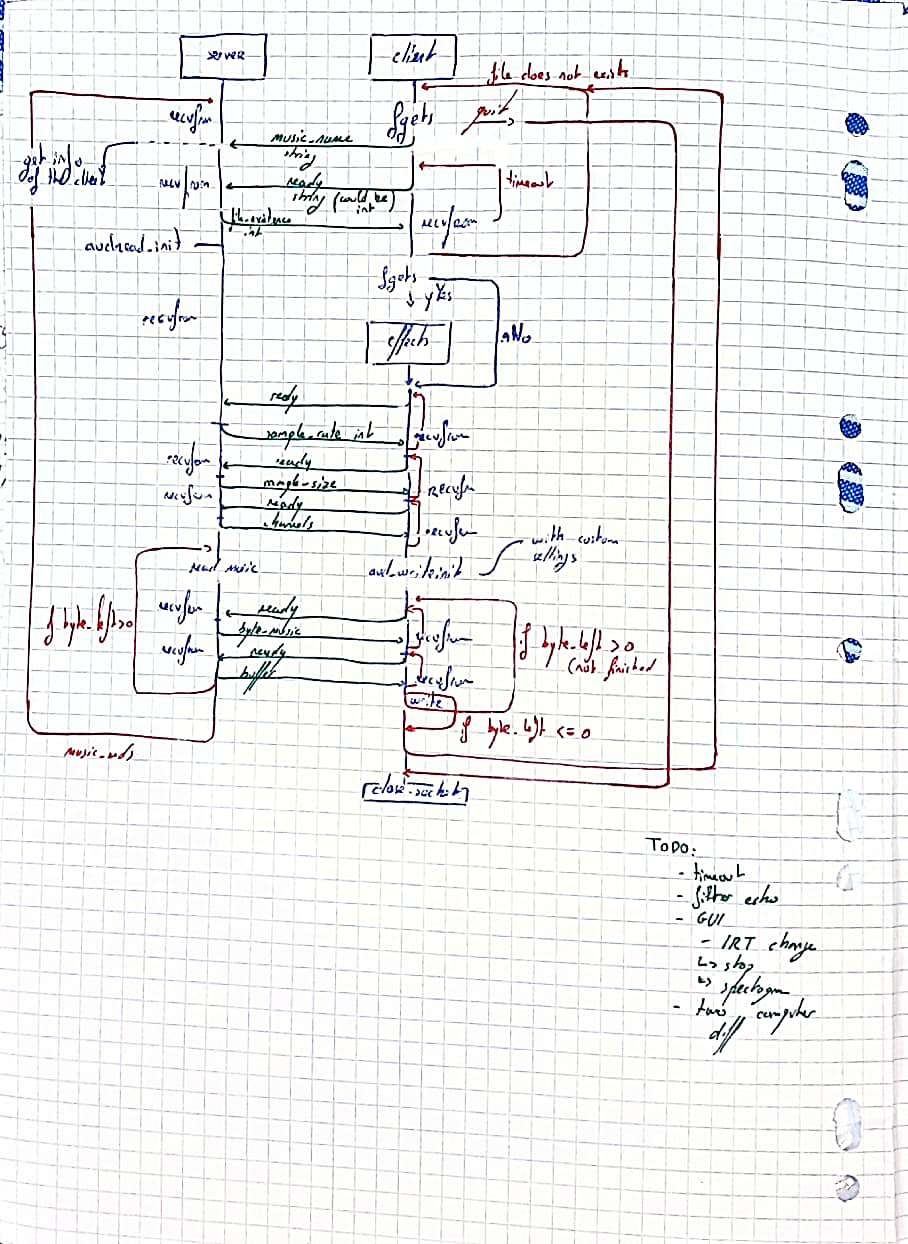 server
client
file does not exists
recvfrom
fgets
quit
music_name
string
get info
of the client
recvfrom
ready
string (could be
int)
timeout
file_existence
int
recvfrom
audread_init
fgets
yes
recvfrom
NO
effects
redy
sample_rate int
recvfrom
recvfom
ready
sample-size
recvfrom
recvfrom
ready
channels
recvfrom
with custom
settings
read music
aud_writeinit
recvfrom
ready
byte_music
recvfrom
if byte_left>0
if byte_left >0
(not finished
recvfrom
ready
buffer
recvfrom
write
if byte_left <= 0
music_ends
close_socket
TODO:
- timeout
- filter echo
- GUI
- IRT change
↳ stop
↳ spectogam
- two computer
diff